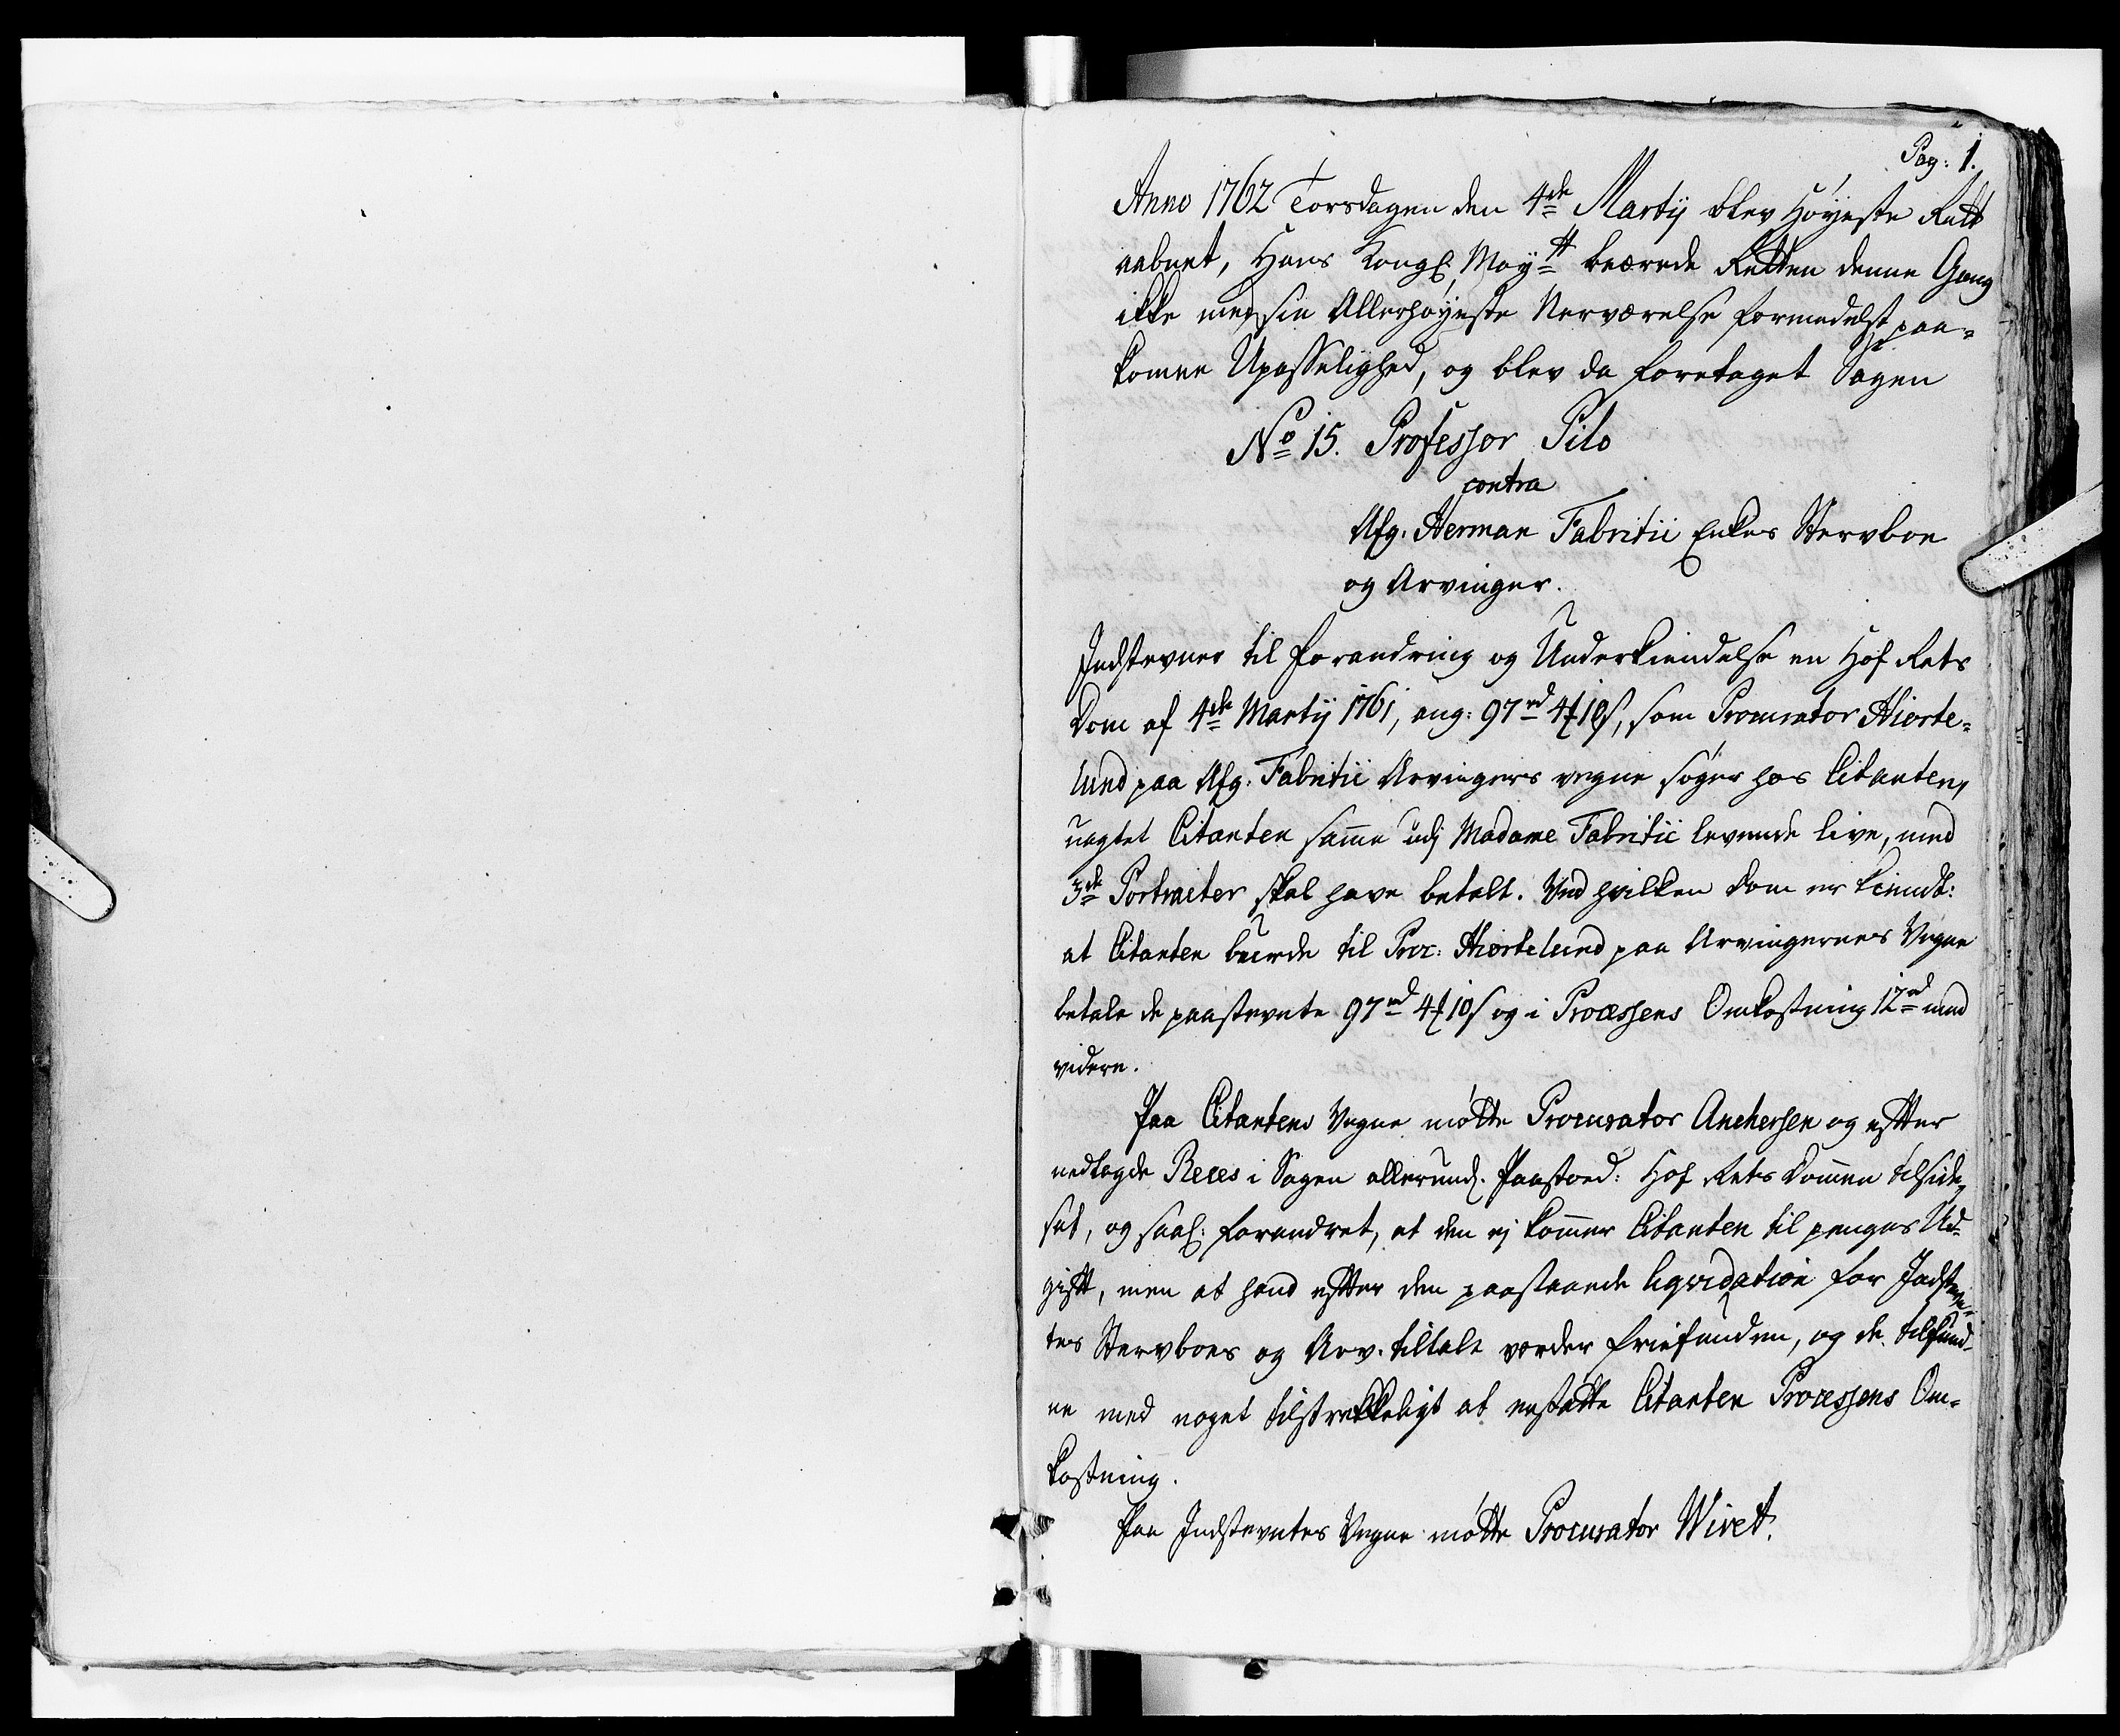 Pag: 1.
Anno 1762 Torsdagen den 4de Martij blev Høyeste Rett
aabnet, Hans Kongl. Mayst beærede Retten denne Gang
ikke med sin Allerhøyeste Nerværelse formedelst paa-
komen Upasselighed, og blev da foretaget Sagen
No 15. Professor Pilo
contra
Afg. Herman Fabritii Enkes Stervboe
og Arvinger.
Indstevner til forandring og Underkiendelse en Hof Rets
Dom af 4de Martij 1761, ang: 97rd 4 10 s, som Procurator Hiorte-
lund paa Afg. Fabritii Arvingers vegne søger hos Citanten,
uagtet Citanten samme udj Madame Fabritii levende live, med
3de Portraiter skal have betalt. Ved hvilken Dom er kiendt:
at Citanten burde til Proc: Hiortelund paa Arvingernes Vegne
betale de paastevnte 97rd 4 10 s og i Processens Omkostning 12rd med
videre.
Paa Citantens Vegne mødte Procurator Anchersen og efter
nedlagde Reces i Sagen allerund. Paastoed: Hof Rets Dommen tilside-
sat, og saal. forandret, at den ej kommer Citanten til penges Ud-
gift, men at hand efter den paastaaende liqvidation for Indstevn-
tes Stervboes og Arv. tiltale vorder friefunden, og de tilfund-
ne med noget tilstrekkeligt at erstatte Citanten Processens Om-
kostning.
Paa Indstevntes Vegne mødte Procurator Wivet.